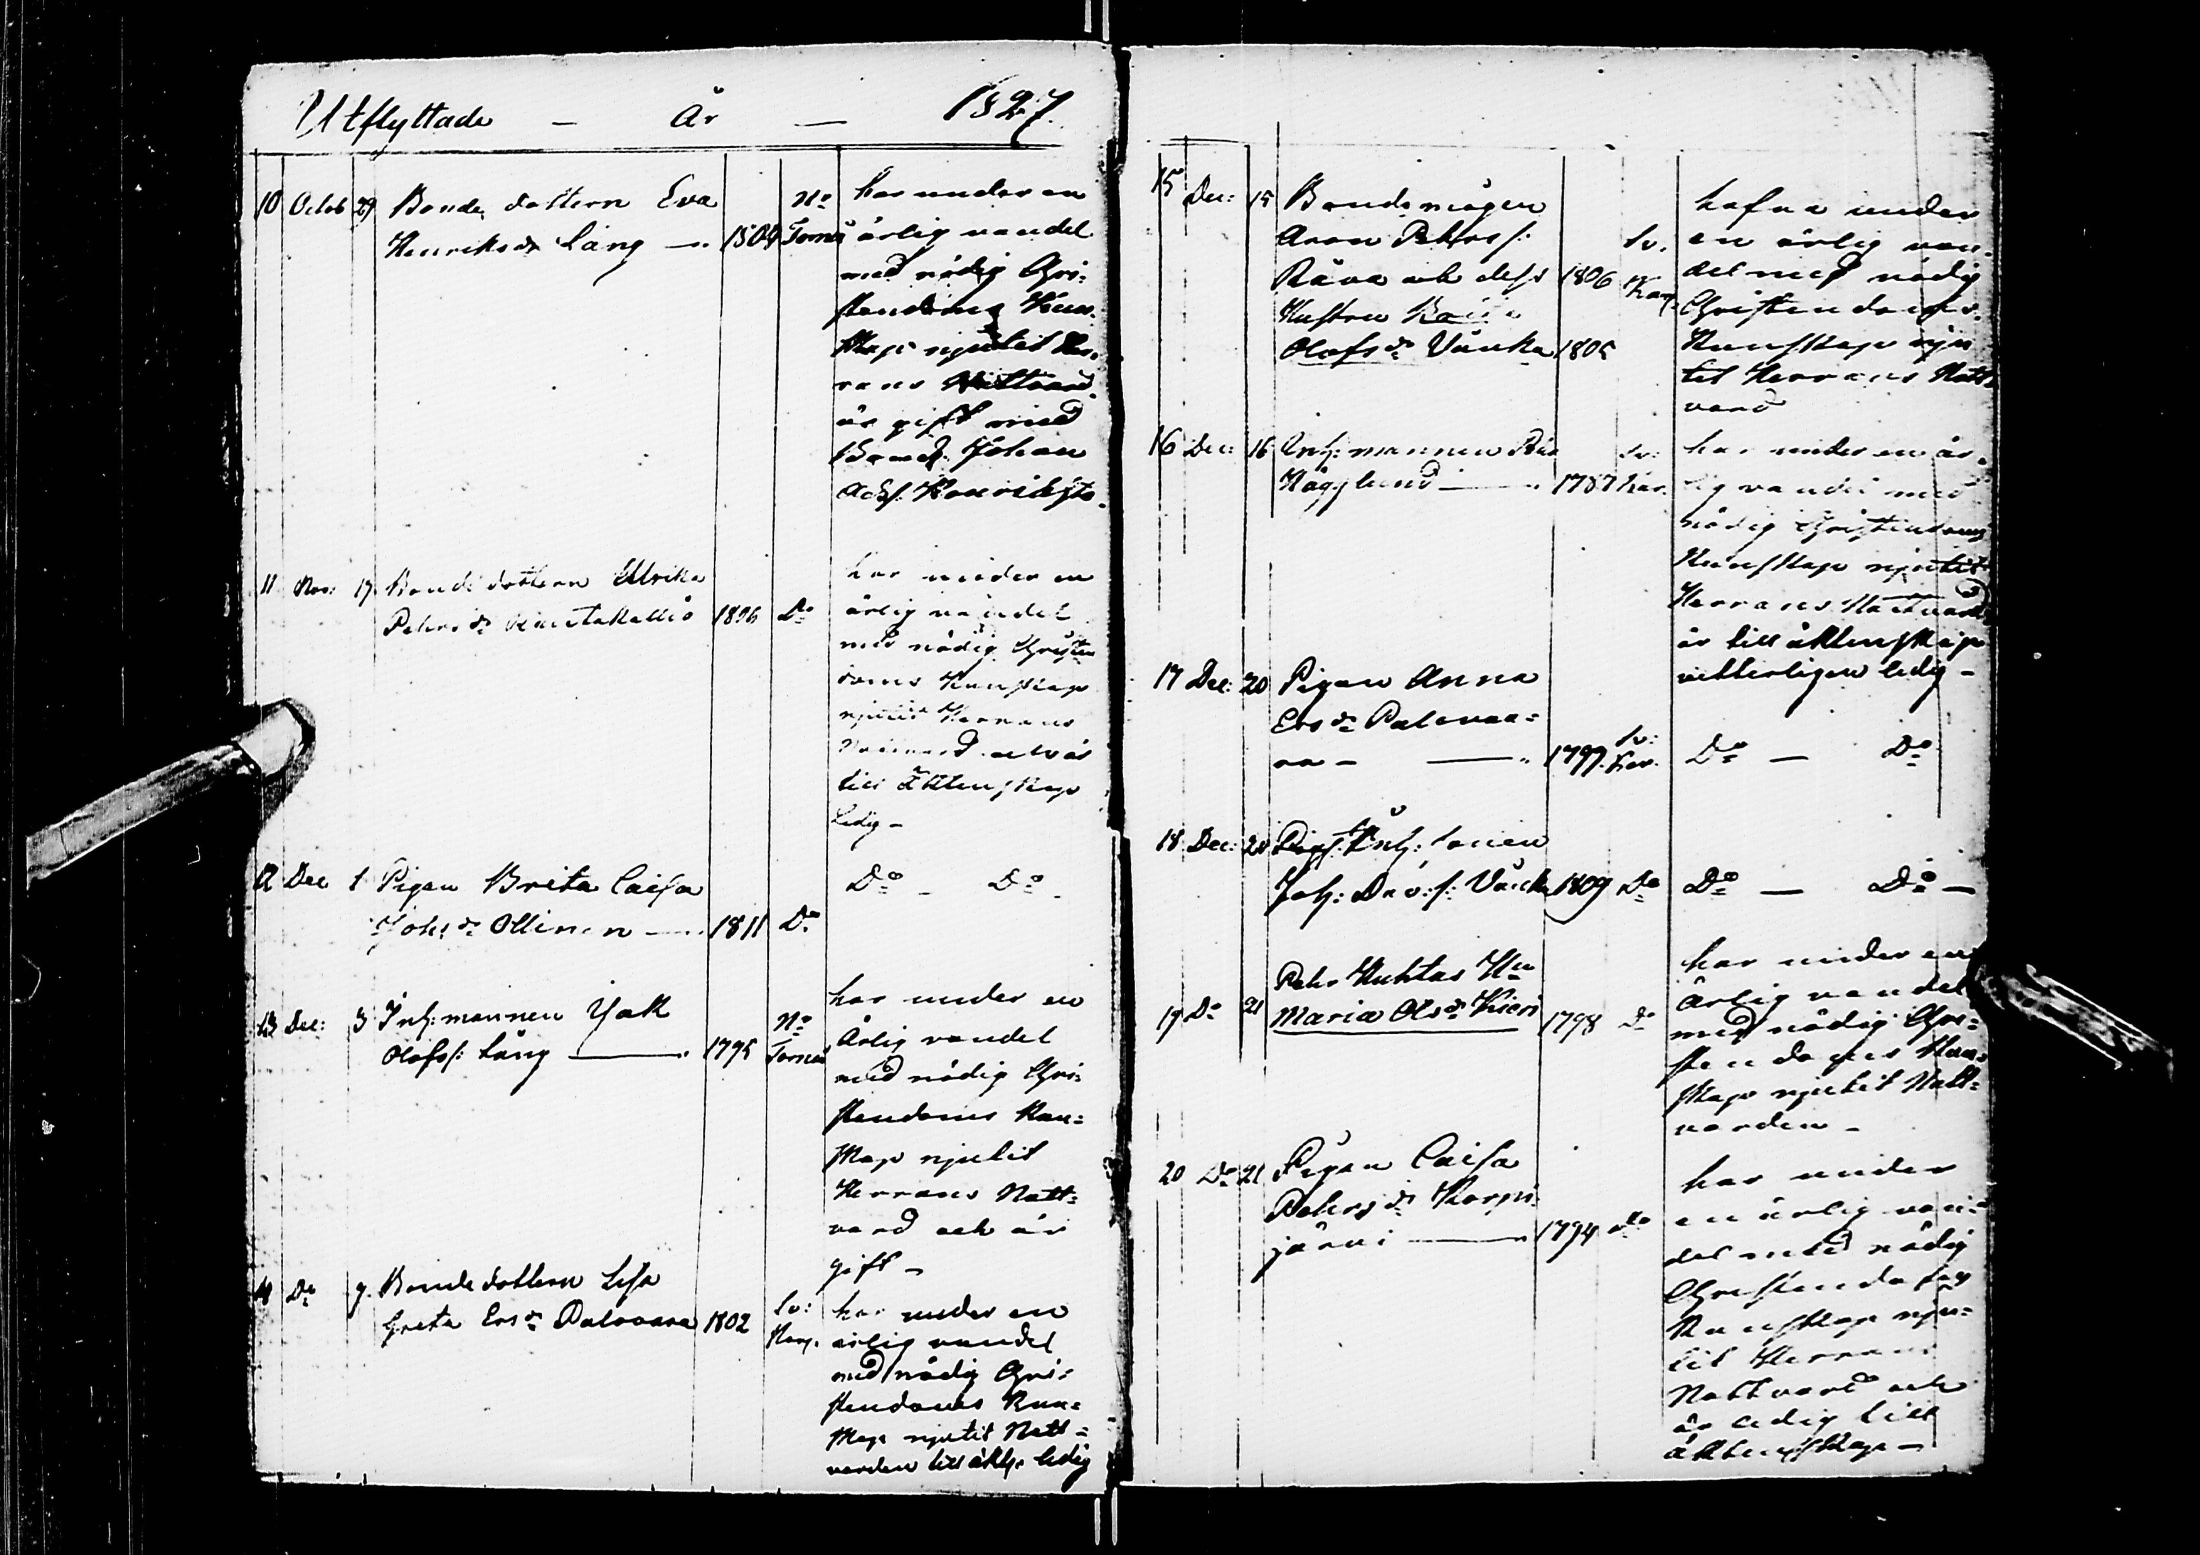 Utflyttade — År — 1827.
10 Octob 29 Bonde dottern Eva
Henriksdr Lång — 1804 No Torneå
har under en
ärlig vandel
med nödig Chri-
stendoms Kun-
skap njutit Her-
rans Nattvard
är gift med
Bond. Johan
11 Nov: 17 Bonde dottern Ulrika
Pehrsdr 1806 Do
har under en
ärlig vandel
med nödig Christen
doms Kunskap
njutit Herrans
Nattvard och är
till Äktenskap
Ledig —
12 Dec 1 Pigan Brita Caisa
Johsdr Ollinen — 1811 Do
Do — Do —
13 Dec: 3 Inh: mannen Jak
Olofss: Lång — 1795 No Torneå
har under en
Ärlig vandel
med nödig Chri-
stendoms Kun=
skap njutit
Herrans Natt=
vard och är
gift —
14 Do 9. Bonde dottern Lisa
Greta Ersdr Palovara 1802 Sv: Kar.
har under en
ärlig vandel
med nödig Chri-
stendoms Kun=
skap njutit Natt=
varden till äkts. ledig
15 Dec: 15 Bonde mågen
Aron Pehrss:
Räva och dess 1806 Sv. Kar.
Hustru
Olofsdr Vänka 1805
hafva under
en ärlig van-
del med nödig
Christendoms
Kunskap nju
tit Herrans Natt-
vard
16 Dec: 16 Inh: mannen
Hägglund — 1787 Sv: Kar.
har under en är-
lig vandel med
nödig Christendoms
Kunskap njutit
Herrans Nattvard
är till äktenskap
vitterligen ledig —
17 Dec: 20 Pigan Anna
Ersdr Palovaa=
ra — — 1797. Sv: Kar.
Do — Do
18 Dec: 20 Inh: sonen
Joh: Dav: s: Vänka 1809 Do
Do — Do —
Pehr Huhtas Hu
19 Do 21 Maria Olsdr Kieri 1798 Do
har under en
Ärlig vandel
med nödig Chri=
stendoms Kun-
skap njutit Natt=
varden —
20 Do 21 Pigan Caisa
Pehrsdr Korpi-
järvi — 1794 Do
har under
en ärlig van-
del med nödig
Christendoms
Kunskap nju=
tit Herrans
Nattvard och
är ledig till
äktenskap —